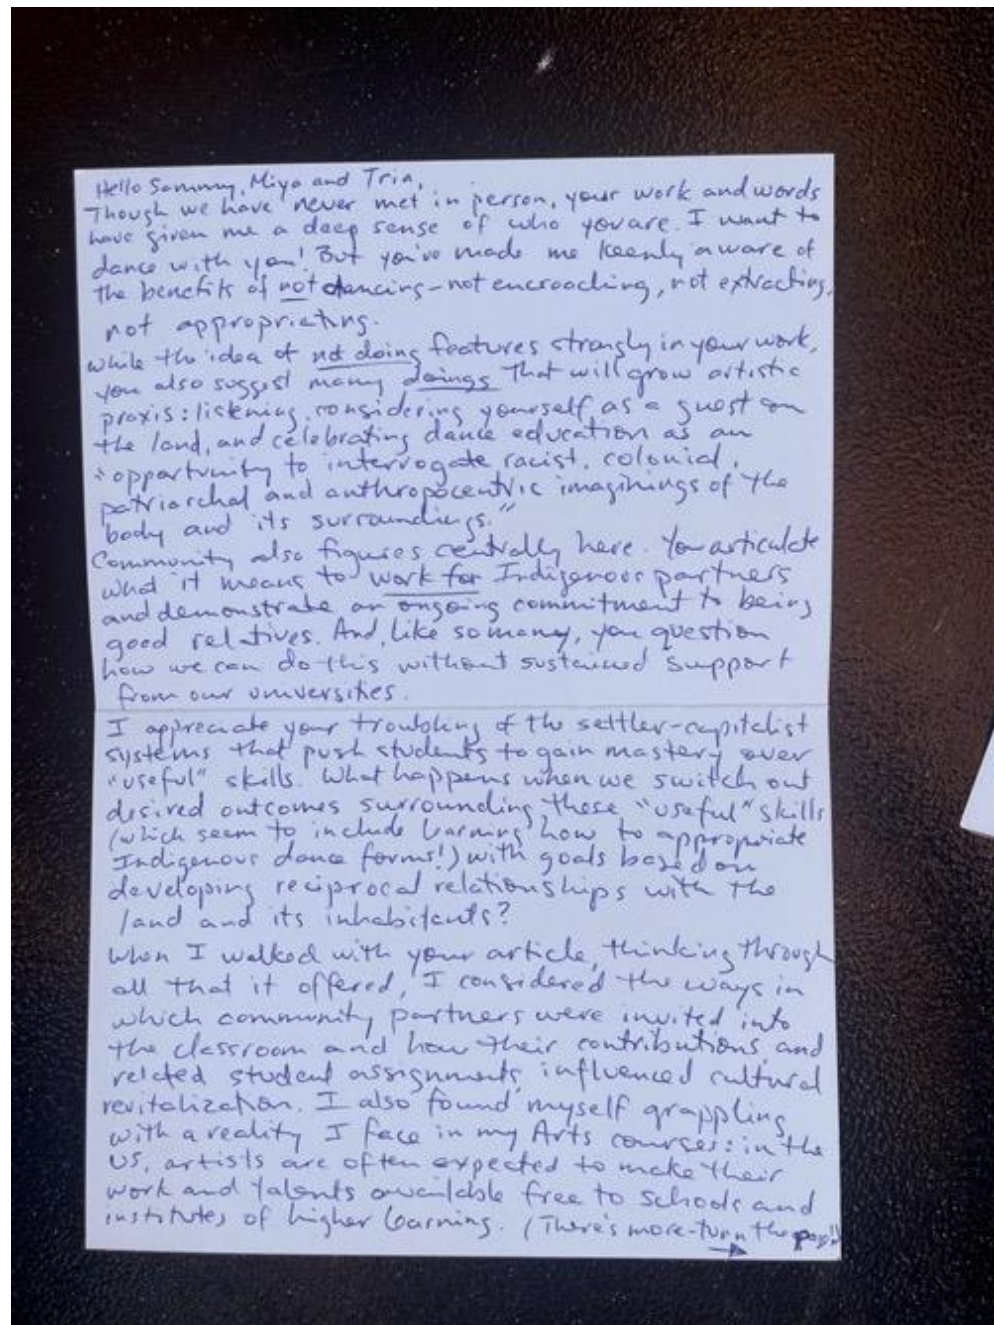 Hello Sammy, Miya and Tria,
Though we have never met in person, your work and words
have given me a deep sense of who you are. I want to
dance with you! But you've made me keenly aware of
the benefits of not dancing – not encroaching, not extracting,
not appropriating.
While the idea of not doing features strongly in your work,
you also suggest many doings that will grow artistic
praxis: listening, considering yourself as a guest on
the land, and celebrating dance education as an
"opportunity to interrogate racist, colonial,
patriarchal and anthropocentric imaginings of the
body and its surroundings."
Community also figures centrally here. You articulate
what it means to work for Indigenous partners
and demonstrate an ongoing commitment to being
good relatives. And, like so many, you question
how we can do this without sustained support
from our universities.
I appreciate your troubling of the settler-capitalist
systems that push students to gain mastery over
"useful" skills. What happens when we switch out
desired outcomes surrounding these "useful" skills
(which seem to include learning how to appropriate
Indigenous dance forms!) with goals based on
developing reciprocal relationships with the
land and its inhabitants?
When I walked with your article, thinking through
all that it offered, I considered the ways in
which community partners were invited into
the classroom and how their contributions and
related student assignments influenced cultural
revitalization. I also found myself grappling
with a reality I face in my Arts courses: in the
US, artists are often expected to make their
work and talents available free to schools and
institutes of higher learning. (There's more - turn the page!)